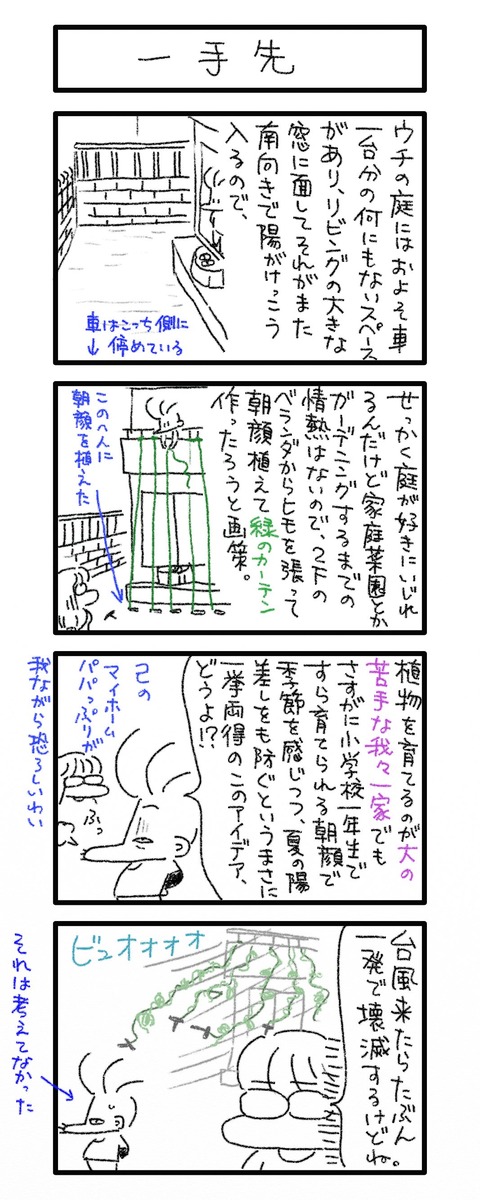 一手先
ウチの庭にはおよそ車
一台分の何にもないスペース
があり、リビングの大きな
窓に面してそれがまた
南向きで陽がけっこう
入るので、
車はこっち側に
↓停めている
せっかく庭が好きにいじれ
るんだけど家庭菜園とか
ガーデニングするまでの
情熱はないので、2Fの
ベランダからヒモを張って
朝顔植えて緑のカーテン
作ったろうと画策。
このへんに
朝顔を植えた
植物を育てるのが大の
苦手な我々一家でも
さすがに小学校一年生で
すら育てられる朝顔で
季節を感じつつ、夏の陽
差しをも防ぐというまさに
一挙両得のこのアイデア、
どうよ!?
己の
マイホーム
パパっぷりが
我ながら恐ろしいわい
ふっ
台風来たらたぶん
一発で壊滅するけどね。
ビュオォォォ
それは考えてなかった